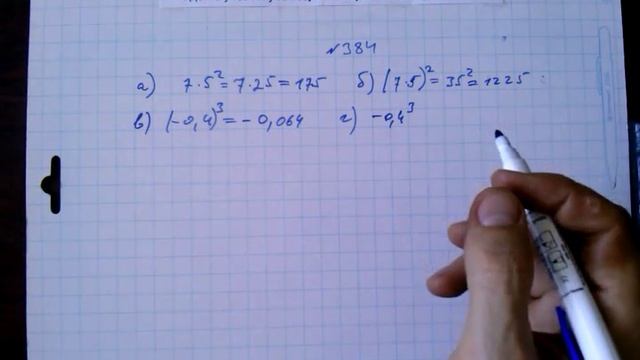 №384
а) 7·5²=7·25=175 б) (7·5)²=35²=1225
в) (-0,4)³=-0,064 г) -0,4³